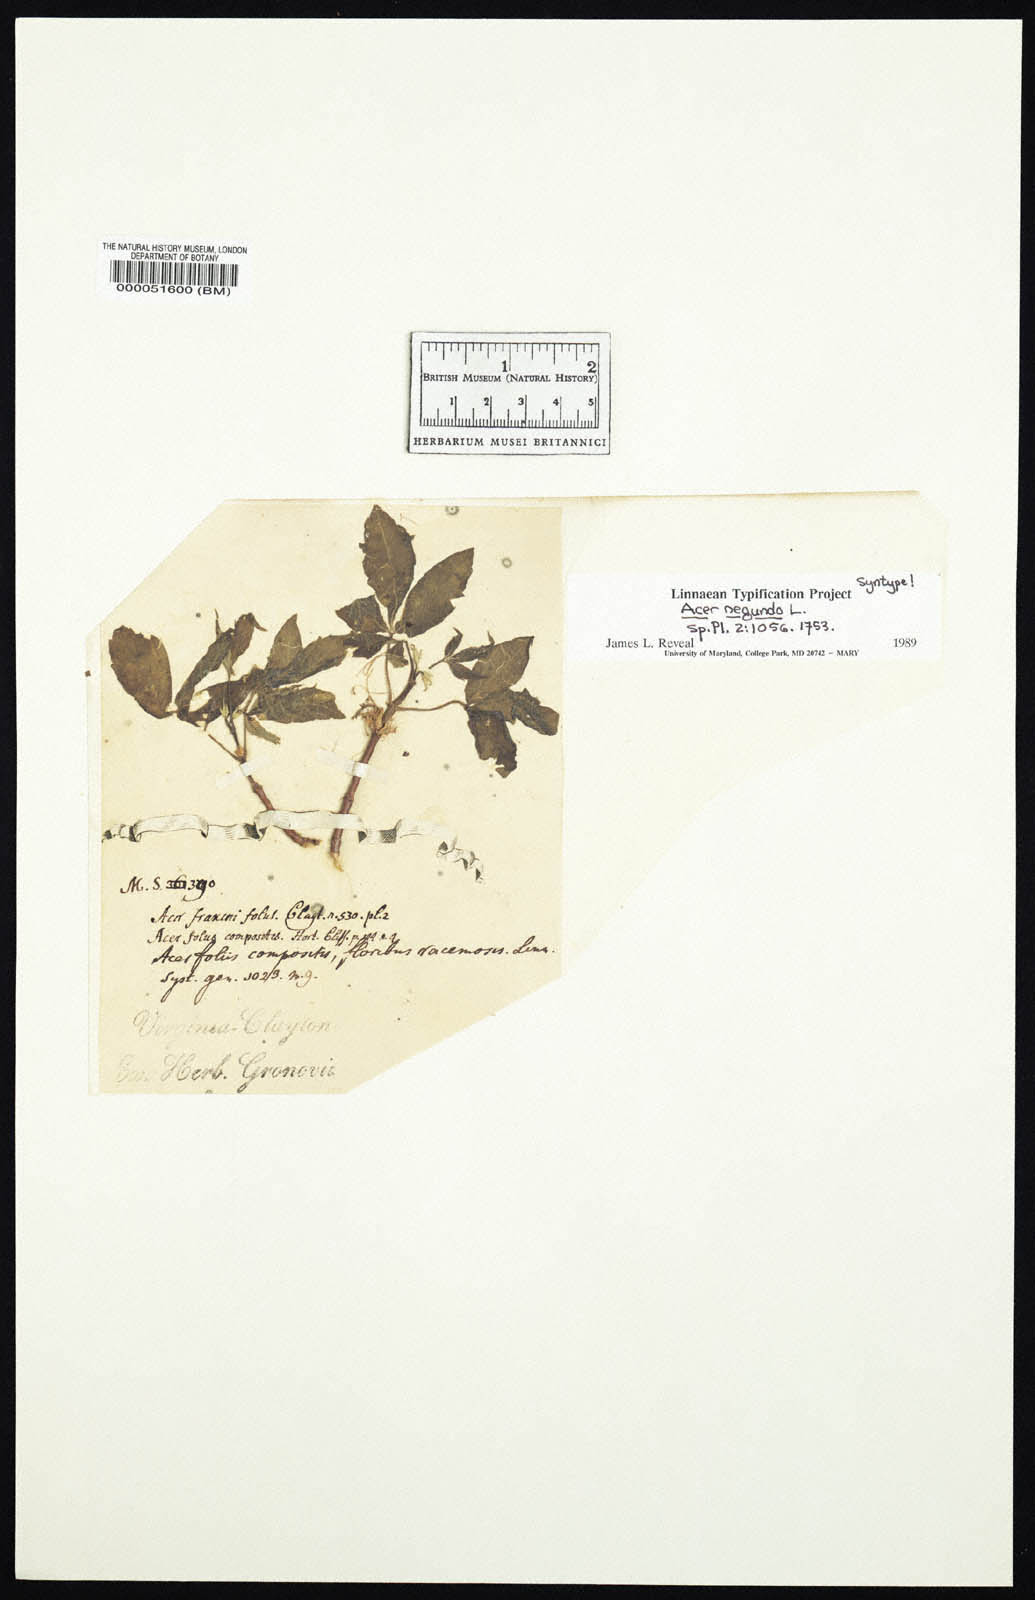 THE NATURAL HISTORY MUSEUM, LONDON
DEPARTMENT OF BOTANY
000051600 (BM)
1 2
BRITISH MUSEUM (NATURAL HISTORY)
1 2 3 4 5
HERBARIUM MUSEI BRITANNICI
Syntype!
Linnaean Typification Project
Acer negundo L.
Sp. Pl. 2:1056. 1753.
James L. Reveal 1989
University of Maryland, College Park, MD 20742 – MARY
M. S.
Acer fraxini foliis. Clayt. n. 530. pl. 2
Acer foliis compositis. Hort. Cliff. p.
Acer foliis compositis, floribus racemosis. Linn.
Syst. gen. 1023. n. 9.
Virginia. Clayton
Herb. Gronovii